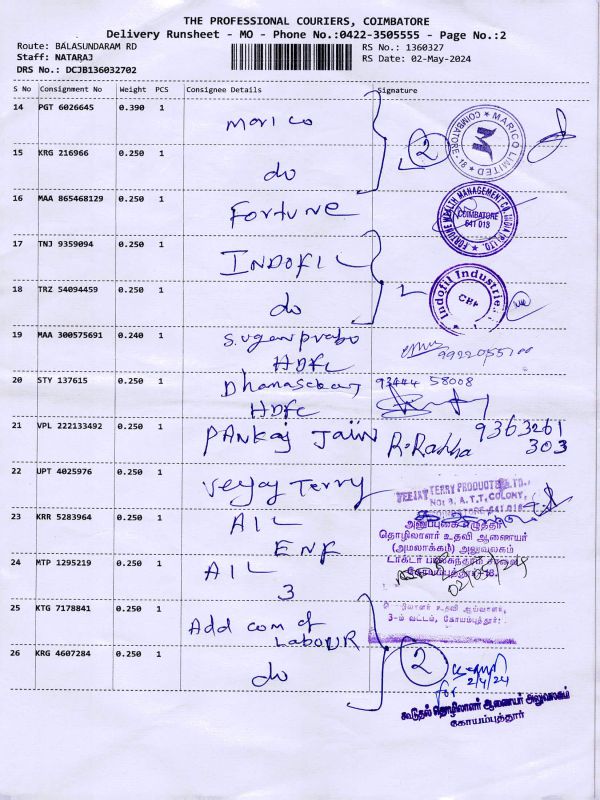 THE PROFESSIONAL COURIERS, COIMBATORE
Delivery Runsheet - MO - Phone No.:0422-3505555 - Page No.:2
Route: BALASUNDARAM RD
RS No.: 1360327
Staff: NATARAJ
RS Date: 02-May-2024
DRS No.: DCJB136032702
S No Consignment No Weight PCS Consignee Details Signature
14 PGT 6026645 0.390 1 Marico
2
MARICO LIMITED
COIMBATORE - 18
15 KRG 216966 0.250 1 do
16 MAA 865468129 0.250 1 Fortune
FORTUNE WEALTH MANAGEMENT CO. INDIA (P) LTD.
COIMBATORE
641 018
17 TNJ 9359094 0.250 1 INDOFIL
Indofil Industries
18 TRZ 54094459 0.250 1 do
19 MAA 300575691 0.240 1 Suganprabo
HDFC
20 STY 137615 0.250 1 Dhanasekar 93444 58008
HDFC
21 VPL 222133492 0.250 1 PANkaj Jain R. Radha 9363261
303
22 UPT 4025976 0.250 1 Veejay Terry
VEEJAY TERRY PRODUCTS LTD.,
A.T.T. COLONY,
23 KRR 5283964 0.250 1 AIL
ENF
தொழிலாளர் உதவி ஆணையர்
(அமலாக்கம்) அலுவலகம்
24 MTP 1295219 0.250 1 AIL
3
கோயம்புத்தூர் 18.
25 KTG 7178841 0.250 1 Add com of
LaboUR
உதவி ஆய்வாளர்,
3-ம் வட்டம், கோயம்புத்தூர்.
26 KRG 4607284 0.250 1 do
2
for 2/4/24
கூடுதல் தொழிலாளர் ஆணையர் அலுவலகம்
கோயம்புத்தூர்